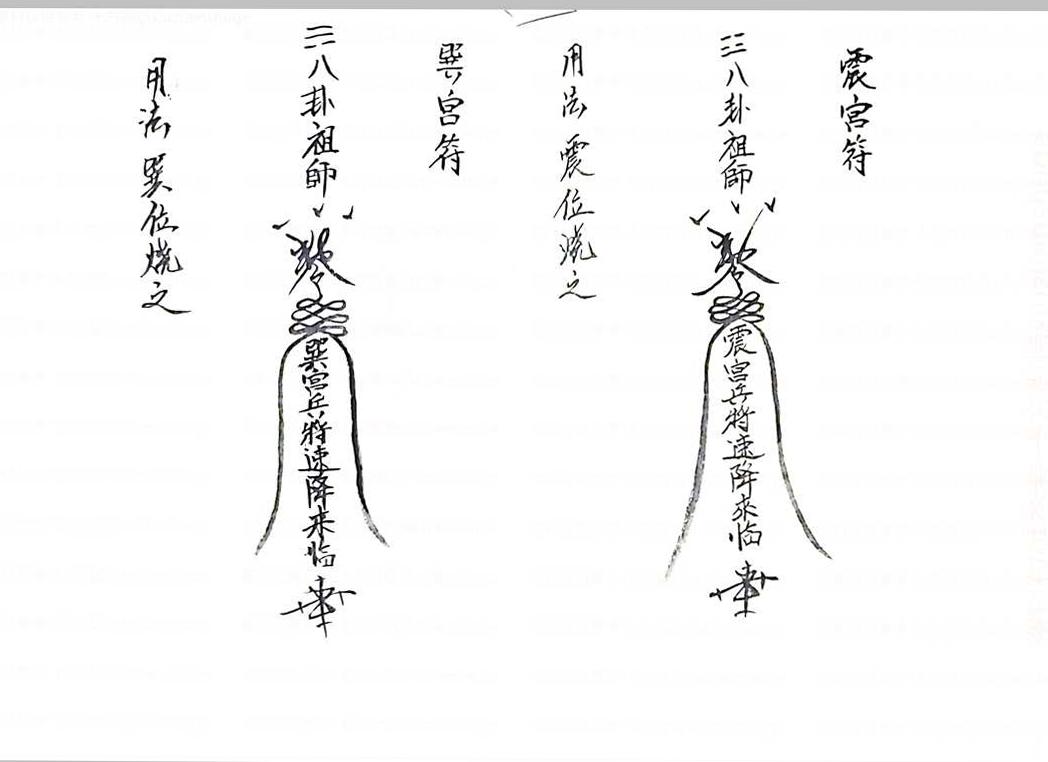 震宮符
☳八卦祖師
震宮兵將速降來临
用法震位燒之
巽宮符
☴八卦祖師
巽宮兵將速降來临
用法巽位燒之